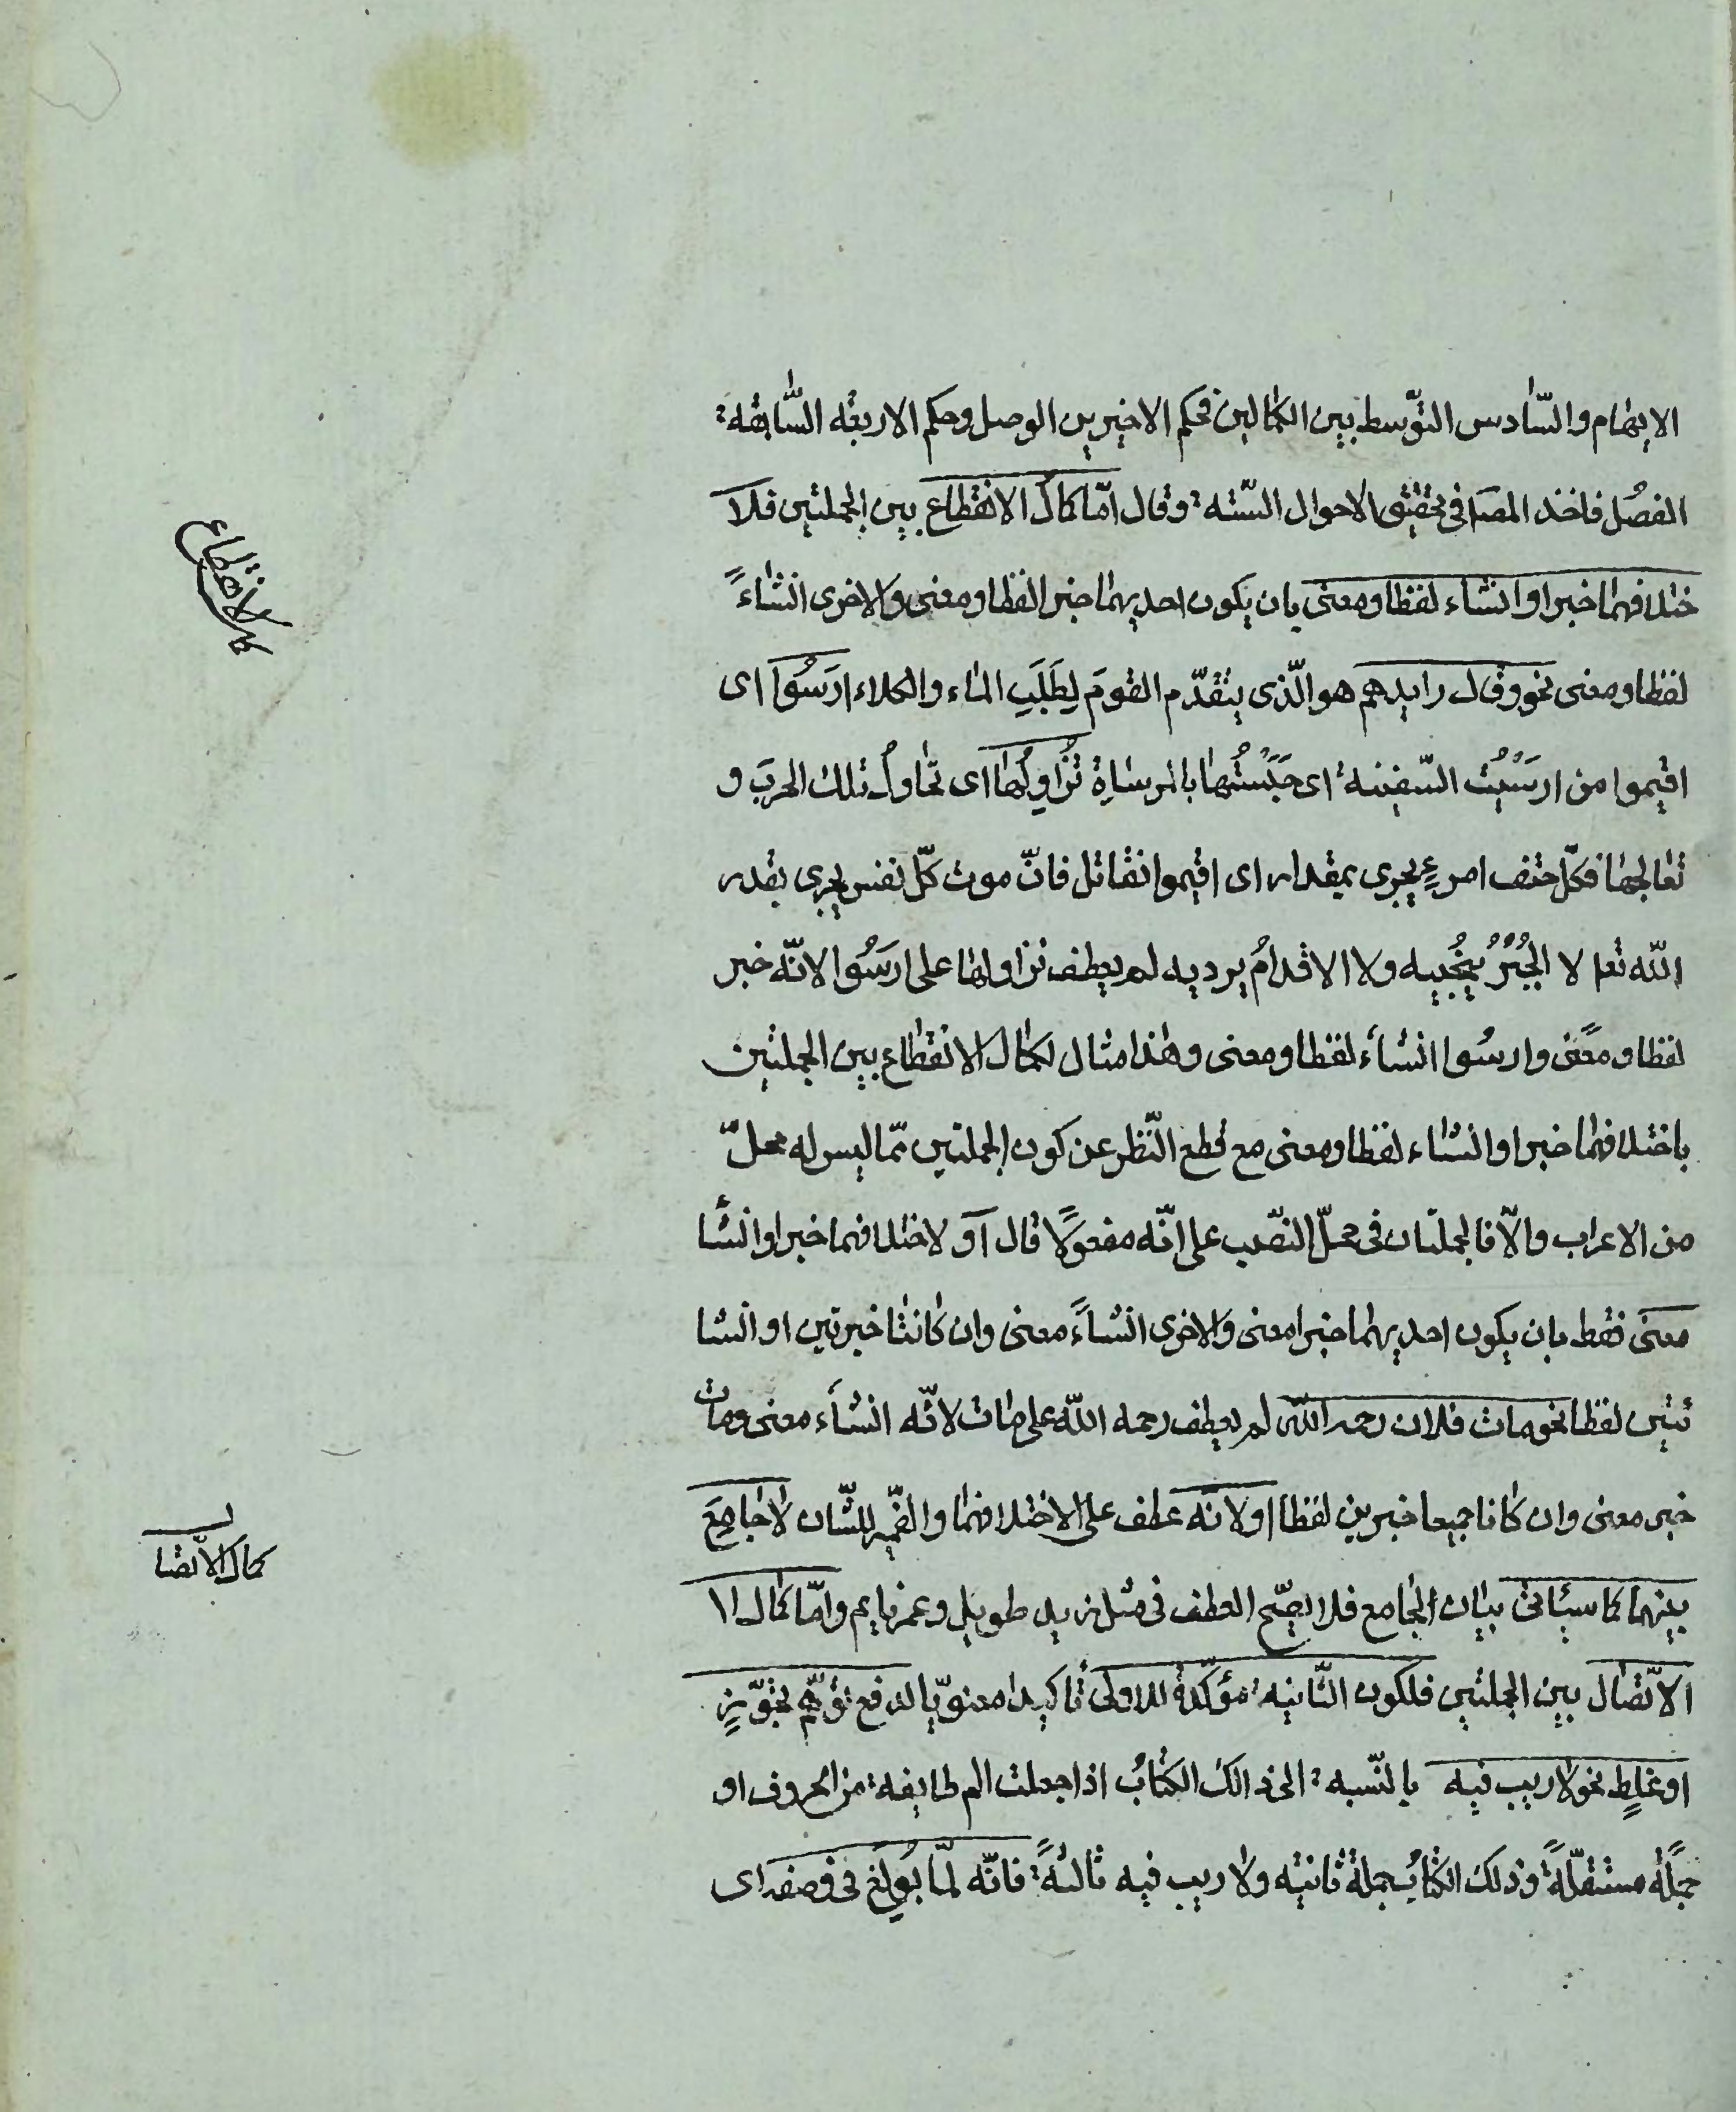 الايهام والسّادس التوّسط بين الكمالين فحكم الاخيرين الوصل وحكم الاربعة السّابقة
الفصل فاخذ المصـ فى تحقيق الاحوال السّتة وقال امّا كمال الانقطاع بين الجملتين فلا
ختلافهما خبرا وانشاء لفظا ومعنى بان يكون احديهما خبرا لفظا ومعنى والاخرى انشاءً
لفظا ومعنى نحو وقال رايدهم هو الّذى يتقدّم القومَ لِطَلَبَِ الماء والكلاء ارسَُوا اى
اقيموا من ارسَيْتُ السّفينة اى حَبَسْتُها بالمرساةِ نُزَاوِلُها اى نحاولُ تلك الحربَ و
نعالجها فكلّ حتف امرءٍ يجرى بمقدار اى اقيموا نقاتل فانّ موت كلّ نفس يجرى بقدر
اللّه تعا لا الجُبْنُ يُنْجُيه ولا الاقدامُ يرديه لم يعطف نزاولها على ارسَُوا لانّه خبر
لفظا ومعًنى وارسُوا انشأء لفظا ومعنى وهذا مثال لكمال الانقطاع بين الجملتين
باختلافهما خبرا وانشاء لفظا ومعنى مع قطع النّظر عن كون الجملتين ممّا ليس له محلّ
من الاعراب والّا فالجملتان فى محلّ النصّب على انّه مفعولًا قال آو لاختلافهما خبرا وانشأ
معنى فقط بان يكون احديهما خبرا معنى والاخرى انشاءً معنى وان كانتا خبرتين او انشا
ئتين لفظا نحو مات فلان رحمه اللّه لم يعطف رحمه اللّه على مات لانّه انشأء معنى ومات
خبر معنى وان كانا جميعا خبرين لفظا او لانّه عطف على الاختلافهما والضّمير للشّان لا جامِعَ
بينهما كما سيأتى بيان الجامع فلا يصّح العطف فى مثل زيد طويل وعمر نايم وامّا كمال الا
الاتّصال بين الجملتين فلكون الثّانية مؤكّدة للاولى تأكيدا معنويّا لدفع توّهم تجوّزٍ
او غلطٍ نحو لا ريب فيه بالنّسبة الى ذالك الكتابُ اذا جعلت الم طايفة من الحروف او
جملًة مستقلّةً وذلك الكتابُ جملة ثانية ولا ريب فيه ثالثةً فانّه لمّا بُولِغَ فى وصفه اى
كمال الانقطاع
كمال الاتّصا
ل